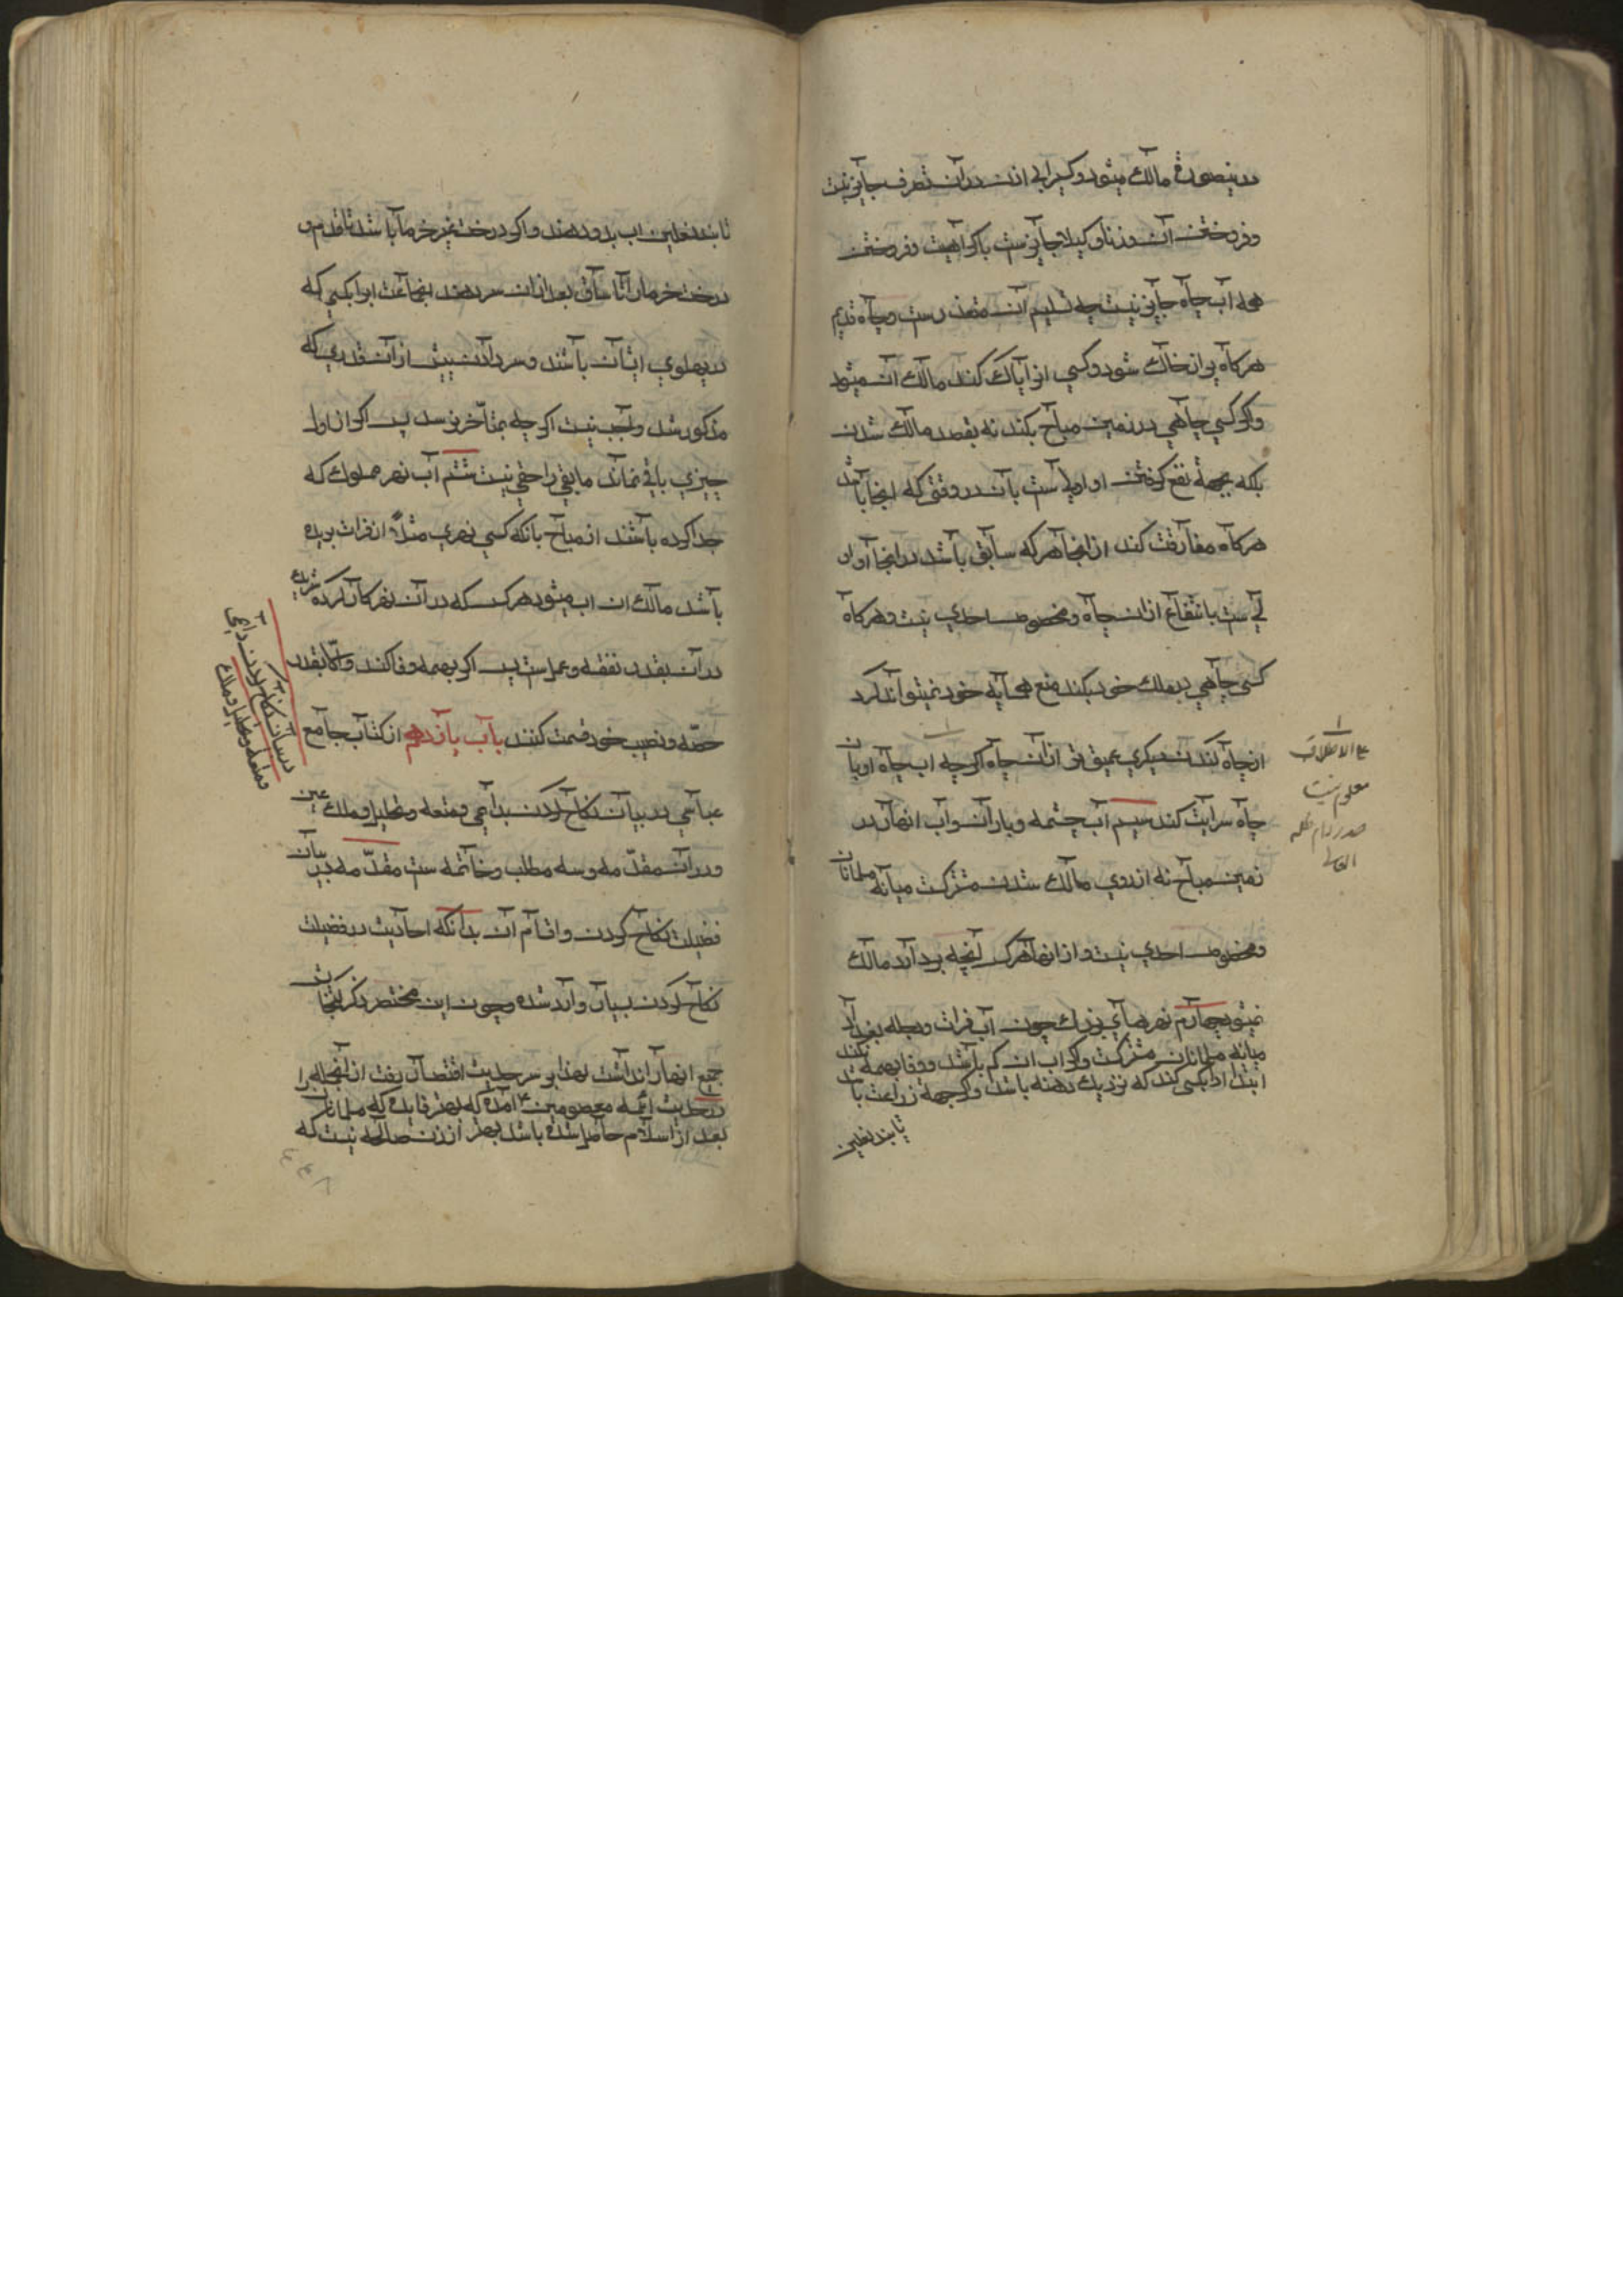 درینصورت مالك میشود و کسیرا بی اذن در آن تصرف جایز نیست
و فروختن آن وزنا و کیلا جایزست باکراهیت و فروختن
همه اب چاه جایز نیست چه تسلیم آن متعذرست و چاه قدیم
هرکاه پر از خاك شود و کسی انرا پاك کند مالك آن میشود
و اکر کسی چاهی در زمین مباح بکند نه بقصد مالك شدن
بلکه بجهة نفع کرفتن او اولاست بآن در وقتی که اینجا باشد
هرکاه مفارقت کند از اینجا هر که سابق باشد در اینجا او او
لی ست بانتفاع ازان چاه و مخصوص احدی نیست و هرکاه
کسی چاهی در ملك خود بکند منع همسایه خود نمیتواند کرد
از چاه کندن دیکری عمیق تر از آن چاه اکر چه اب چاه او بان
چاه سرایت کند سیم آب چشمه و باران و آب انهار در
زمین مباح نه از روی مالك شدن مشترکست میانه مسلمانان
و مخصوص احدی نیست و از انها هر کس آنچه بردارد مالك
میشود چهارم نهرهای بزرك چون آب فرات و دجله بغداد
میانه مسلمانان مشترکست و اکر اب ان کم باشد و وفا بهمه نکند
ابتدا ادا بکسی کند که نزدیك دهنه باشد و اکر جهة زراعت باشد
تا بند نعلین
علی الاطلاق
معلوم نیست
صدر دام ظله
العالی
تا بند نعلین اب بدو دهند و اکر درخت غیر خرما باشد تا قدم و
درخت خرما را تا ساق بعد ازان سر دهند بجماعت ابرا بکسی که
در پهلوی ایشان باشند و سر دادن بیش از آن قدری که
مذکور شد واجب نیست اکر چه بمتأخر نرسد پس اکر از اول
چیزی باقی نماند مابقی را حقی نیست ششم آب نهر مملوك که
جدا کرده باشند از مباح بانکه کسی نهری مثلاً از فرات بریده
باشد مالك ان اب میشود هر کس که در آن نهر کار کرده شریك
در آن بقدر نفقه و عمل ست پس اکر بهمه وفا کند و الّا بقدر
حصّه و نصیب خود قسمت کنند باب پانزدهم از کتاب جامع
عباسی در بیان نکاح کردن بدایمی و متعه و تحلیل و ملك عین
و در آن مقدّمه و سه مطلب و خاتمه ست مقدّمه در بیان
فضیلت نکاح کردن و اقسام آن بدانکه احادیث در فضیلت
نکاح کردن بسیار وارد شده و چون این مختصر ذکر کنجایش
جمیع انها را نداشت لهذا بر سر حدیث اقتصار رفت از آنجمله
در حدیث ائمه معصومین ع آمده که بهتر فایده که مسلمانان را
بعد از اسلام حاصل شده باشد بهتر از زن صالحه نیست که
در بیان نکاح کردن دایمی
و متعه و تحلیل و ملك